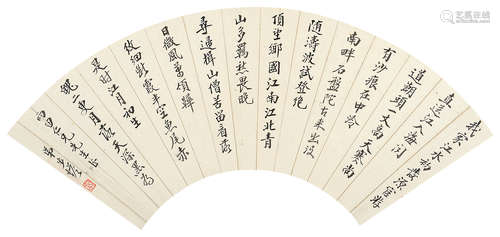 我家江水初發源宦游
直送江入海聞
道潮頭一丈高天寒尚
有沙痕在中泠
南畔石盤陀古來出沒
隨濤波試登絕
頂望鄉國江南江北青
山多羈愁畏晚
尋歸楫山僧苦留看落
日微風萬頃靴
文細斷霞半空魚尾赤
是時江月初生
魄二更月落天深黑為
仁兄先生正
弟